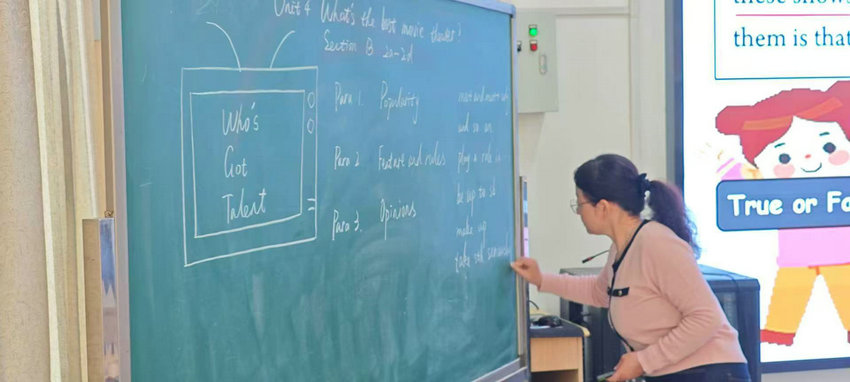 Unit 4 What's the best movie theater?
Section B 2a-2d
Who's
Got
Talent
Para 1. Popularity
Para 2. Feature and rules
Para 3. Opinions
more and more
and so on
play a role in
be up to sb
make up
take sth seriously
these shows
them is that
True or Fa